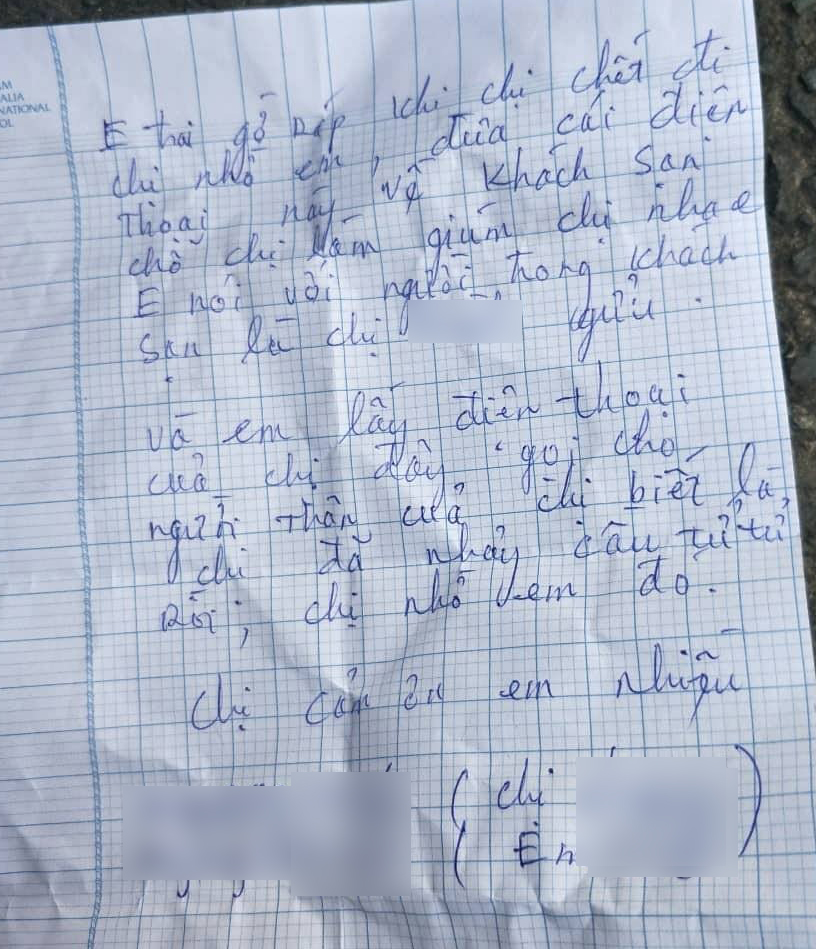 AM
ALIA
NATIONAL
OL
E thai gỗ nếp khi chị chết đi
chị nhờ em, đưa cái điện
Thoại này về khách sạn
chỗ chị làm giùm chị nha e
E nói với người trong khách
sạn là chị gửi.
và em lấy điện thoại
của chị đây gọi cho
người thân của chị biết là,
chị đã nhảy cầu tử tử
Rồi; chị nhờ em đó.
Chị cảm ơn em nhiều
( chị )
( Em